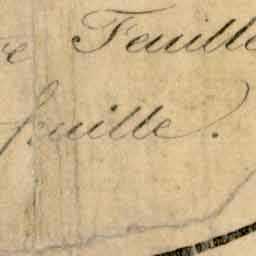 re Feuille
feuille.